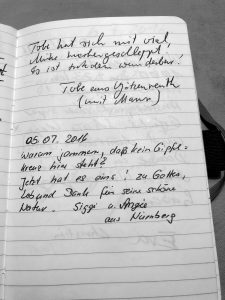 Tobe hat sich mit viel
Mühe hierhergeschleppt,
Es ist trotzdem wunderbar!
Tobe aus Götzenreuth
(mit Mama)
05.07.2016
Warum jammern, daß kein Gipfel-
kreuz hier steht?
Jetzt hat es eins! zu Gottes,
Lob und Dank für seine schöne
Natur. Siggi u. Angie
aus Nürnberg